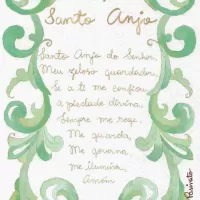 Santo Anjo
Santo Anjo do Senhor,
Meu zeloso guardador,
Se a ti me confiou
a piedade divina,
Sempre me rege,
Me guarda,
Me governa,
me ilumina.
Amém